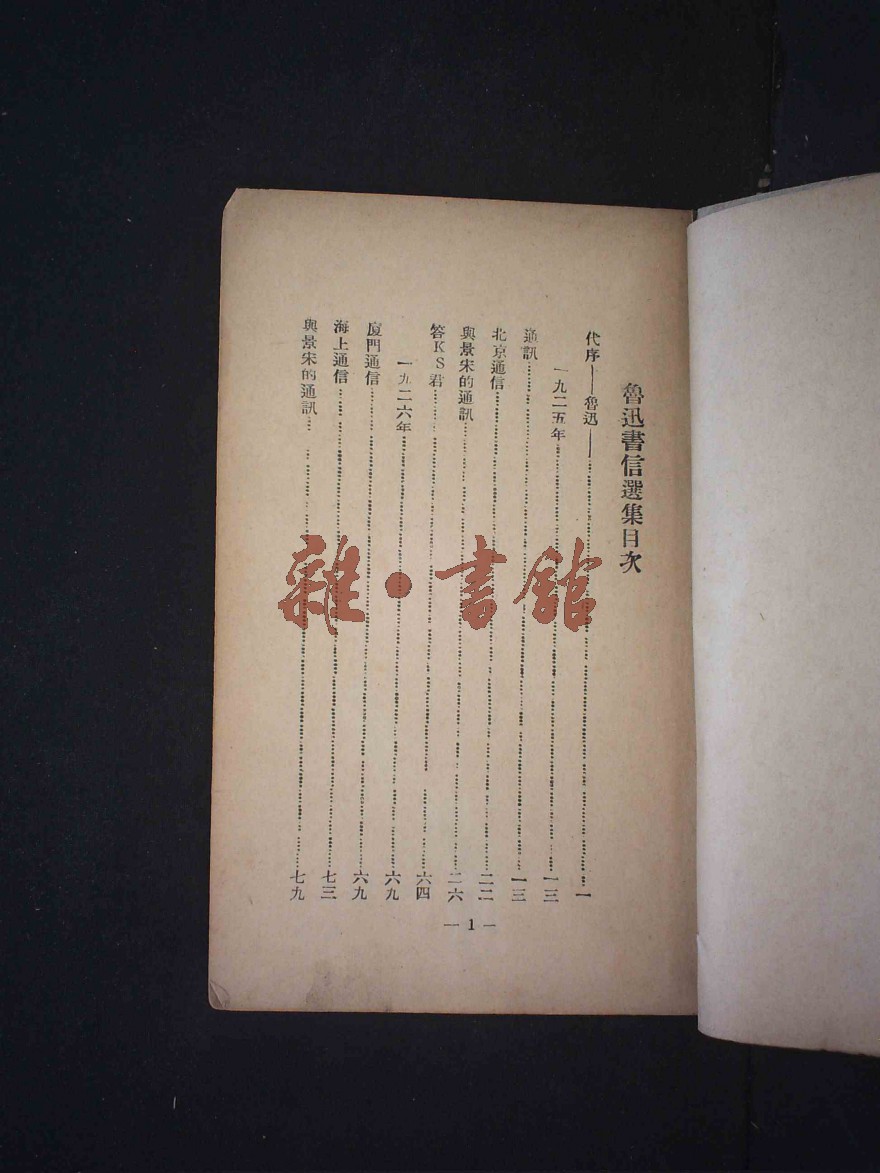 魯迅書信選集目次
代序——魯迅——……一
一九二五年……一三
通訊……一三
北京通信……二二
與景宋的通訊……二六
答KS君……六四
一九二六年……六九
廈門通信……六九
海上通信……七三
與景宋的通訊……七九
— 1 —
雜·書館